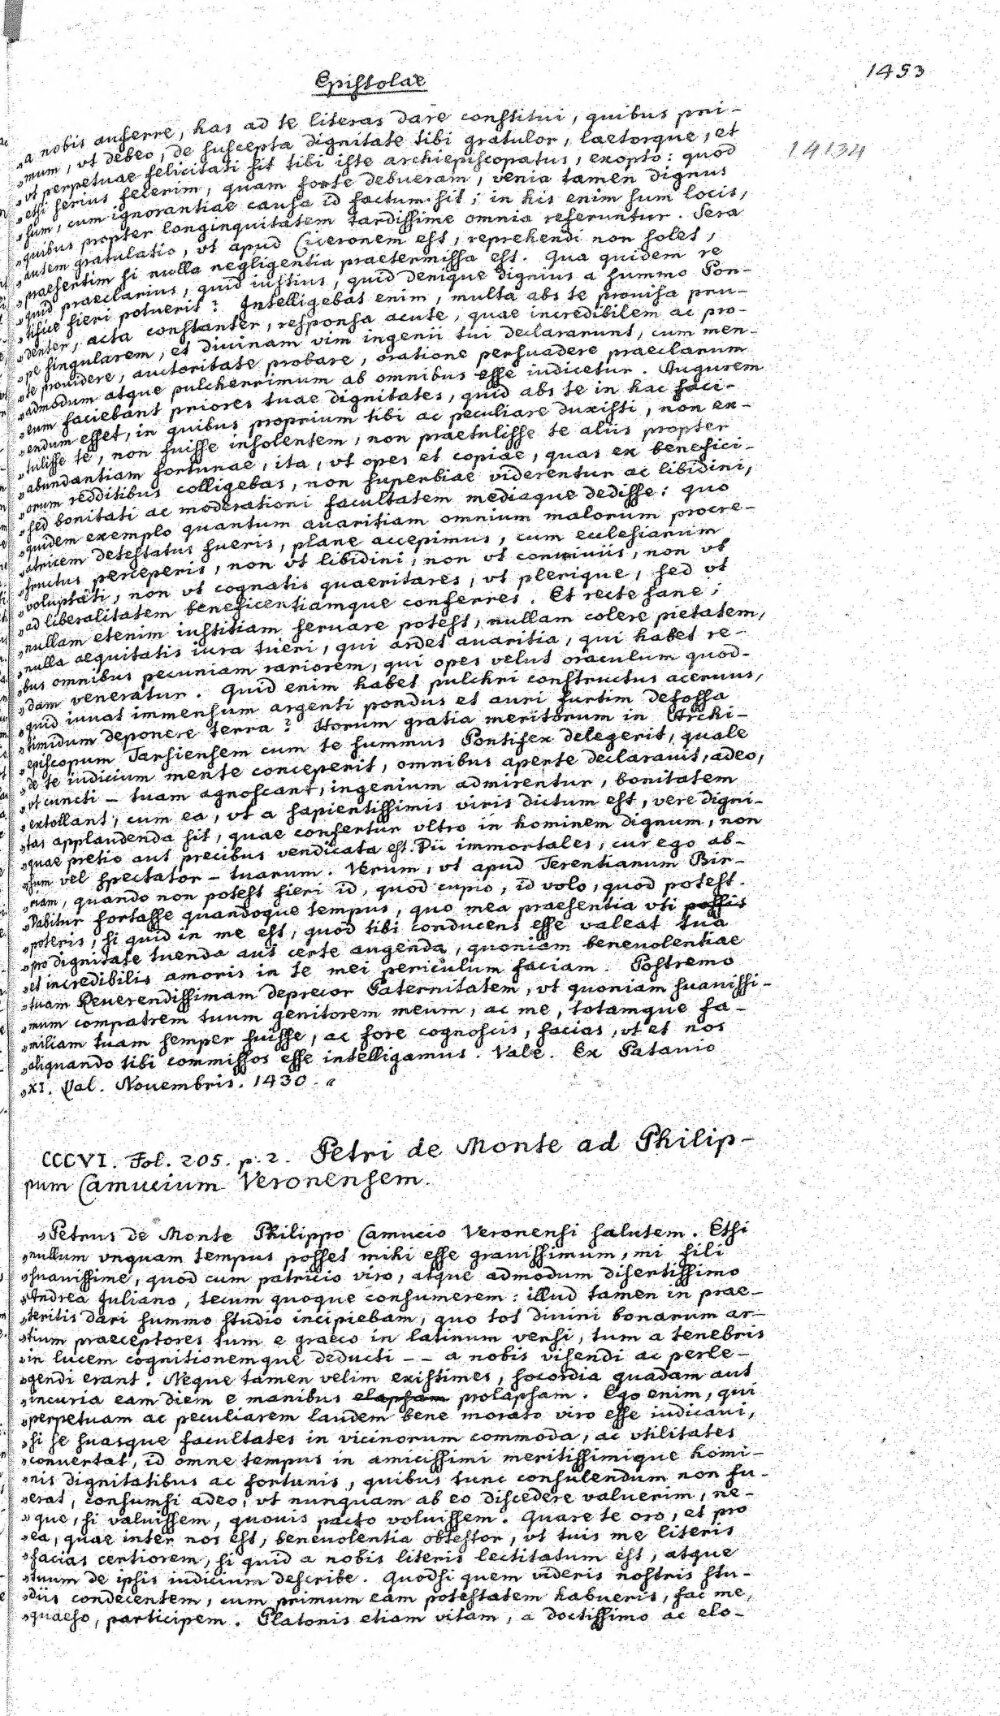 Epistolae
1453
14134
„a nobis auferre, has ad te literas dare constitui, quibus pri-
„mum, vt debeo, de suscepta dignitate tibi gratulor, laetorque, et
„vt perpetuae felicitati sit tibi iste archiepiscopatus, exopto: quod
„etsi serius fecerim, quam forte debueram, venia tamen dignus
„sum, cum ignorantiae causa id factum sit; in his enim sum locis,
„quibus propter longinquitatem tardissime omnia referuntur. Sera
„autem gratulatio, vt apud Ciceronem est, reprehendi non solet,
„praesertim si nulla negligentia praetermissa est. Qua quidem re
„quid praeclarius, quid iustius, quid denique dignius a summo Pon-
„tifice fieri potuerit? Intelligebas enim, multa abs te prouisa pru-
„denter, acta constanter, responsa acute, quae incredibilem ac pro-
„pe singularem, et diuinam vim ingenii tui declararunt, cum men-
„te prouidere, auctoritate probare, oratione persuadere praeclarum
„admodum atque pulcherrimum ab omnibus esse iudicetur. Augurem
„eum faciebant priores tuae dignitates, quid abs te in hac faci-
„endum esset, in quibus proprium tibi ac peculiare duxisti, non ex-
„tulisse te, non fuisse insolentem, non praetulisse te aliis propter
„abundantiam fortunae, ita, vt opes et copiae, quas ex benefici-
„orum redditibus colligebas, non superbiae viderentur ac libidini,
„sed bonitati ac moderationi facultatem mediaque dedisse: quo
„quidem exemplo quantum auaritiam omnium malorum procre-
„atricem detestatus fueris, plane accepimus, cum ecclesiarum
„fructus perceperis, non vt libidini, non vt conuiuiis, non vt
„voluptati, non vt cognatis quaeritares, vt plerique, sed vt
„ad liberalitatem beneficentiamque conferres. Et recte sane;
„nullam etenim iustitiam seruare potest, nullam colere pietatem,
„nulla aequitatis iura tueri, qui ardet auaritia, qui habet re-
„bus omnibus pecuniam rariorem, qui opes velut oraculum quod-
„dam veneratur. Quid enim habet pulchri constructus aceruus,
„quid iuuat immensum argenti pondus et auri furtim defossa
„timidum deponere terra? Horum gratia meritorum in Archi-
„episcopum Tarsiensem cum te summus Pontifex delegerit, quale
„de te iudicium mente conceperit, omnibus aperte declarauit, adeo,
„vt cuncti – tuam agnoscant, ingenium admirentur, bonitatem
„extollant, cum ea, vt a sapientissimis viris dictum est, vere digni-
„tas applaudenda sit, quae confertur vltro in hominem dignum, non
„quae pretio aut precibus vendicata est. Dii immortales, cur ego ab-
„sum vel spectator – tuarum. Verum, vt apud Terentianum Bir-
„riam, quando non potest fieri id, quod cupio, id volo, quod potest.
„Dabitur fortasse quandoque tempus, quo mea praesentia vti possis
„poteris, si quid in me est, quod tibi conducens esse valeat tua
„pro dignitate tuenda aut certe augenda, quoniam beneuolentiae
„et incredibilis amoris in te mei periculum faciam. Postremo
„tuam Reuerendissimam deprecor Paternitatem, vt quoniam suauissi-
„mum compatrem tuum genitorem meum, ac me, totamque fa-
„miliam tuam semper fuisse, ac fore cognoscis, facias, vt et nos
„aliquando tibi commissos esse intelligamus. Vale. Ex Patauio
„XI. Cal. Nouembris. 1430. "
CCCVI. Fol. 205. p. 2. Petri de Monte ad Philip-
pum Camucium Veronensem.
„Petrus de Monte Philippo Camucio Veronensi salutem. Etsi
„nullum vnquam tempus posset mihi esse grauissimum, mi fili
„suauissime, quod cum patricio viro, atque admodum disertissimo
„Andrea Iuliano, tecum quoque consumerem: illud tamen in prae-
„teritis dari summo studio incipiebam, quo tot diuini bonarum ar-
„tium praeceptores tum e graeco in latinum versi, tum a tenebris
„in lucem cognitionemque deducti – – a nobis visendi ac perle-
„gendi erant. Neque tamen velim existimes, socordia quadam aut
„incuria eam diem e manibus elapsam prolapsam. Ego enim, qui
„perpetuam ac peculiarem laudem bene morato viro esse iudicaui,
„si se suasque facultates in vicinorum commoda, ac vtilitates
„conuertat, id omne tempus in amicissimi meritissimique homi-
„nis dignitatibus ac fortunis, quibus tunc consulendum non fu-
„erat, consumsi adeo, vt nunquam ab eo discedere valuerim, ne-
„que, si valuissem, quouis pacto voluissem. Quare te oro, et pro
„ea, quae inter nos est, beneuolentia obtestor, vt tuis me literis
„facias certiorem, si quid a nobis literis lectitatum est, atque
„tuum de ipsis iudicium describe. Quodsi quem videris nostris stu-
„diis condecentem, cum primum eam potestatem habueris, fac me,
„quaeso, participem. Platonis etiam vitam, a doctissimo ac elo-